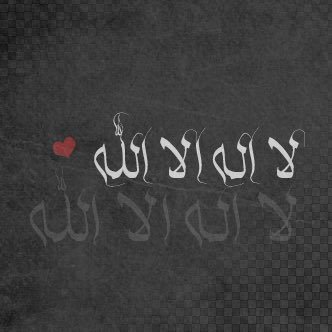 لا اله الا الله
لا اله الا الله